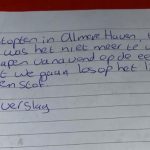 stopten in Almere Haven,
was het niet meer te v
apen vanavond op de ee
t we gaan los op het l
en stof.
verslag